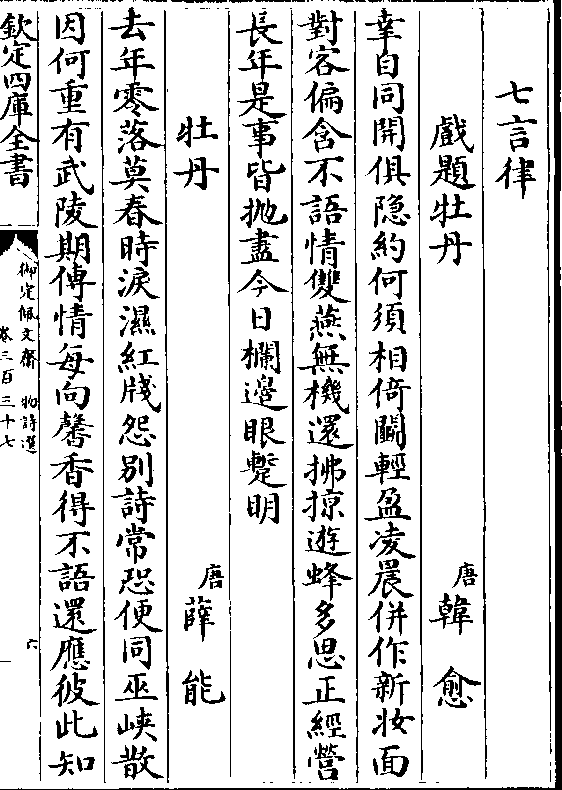 七言律
戲題牡丹
唐 韓愈
幸自同開俱隐約何須相倚鬬輕盈凌晨併作新妝面
對客偏含不語情雙燕無機還拂掠遊蜂多思正經營
長年是事皆抛盡今日欄邉眼蹔明
牡丹
唐 薛能
去年零落莫春時淚濕紅牋怨别詩常恐便同巫峽散
因何重有武陵期傳情每向馨香得不語還應彼此知
欽定四庫全書
御定佩文齋 物詩選
卷三百三十七
六